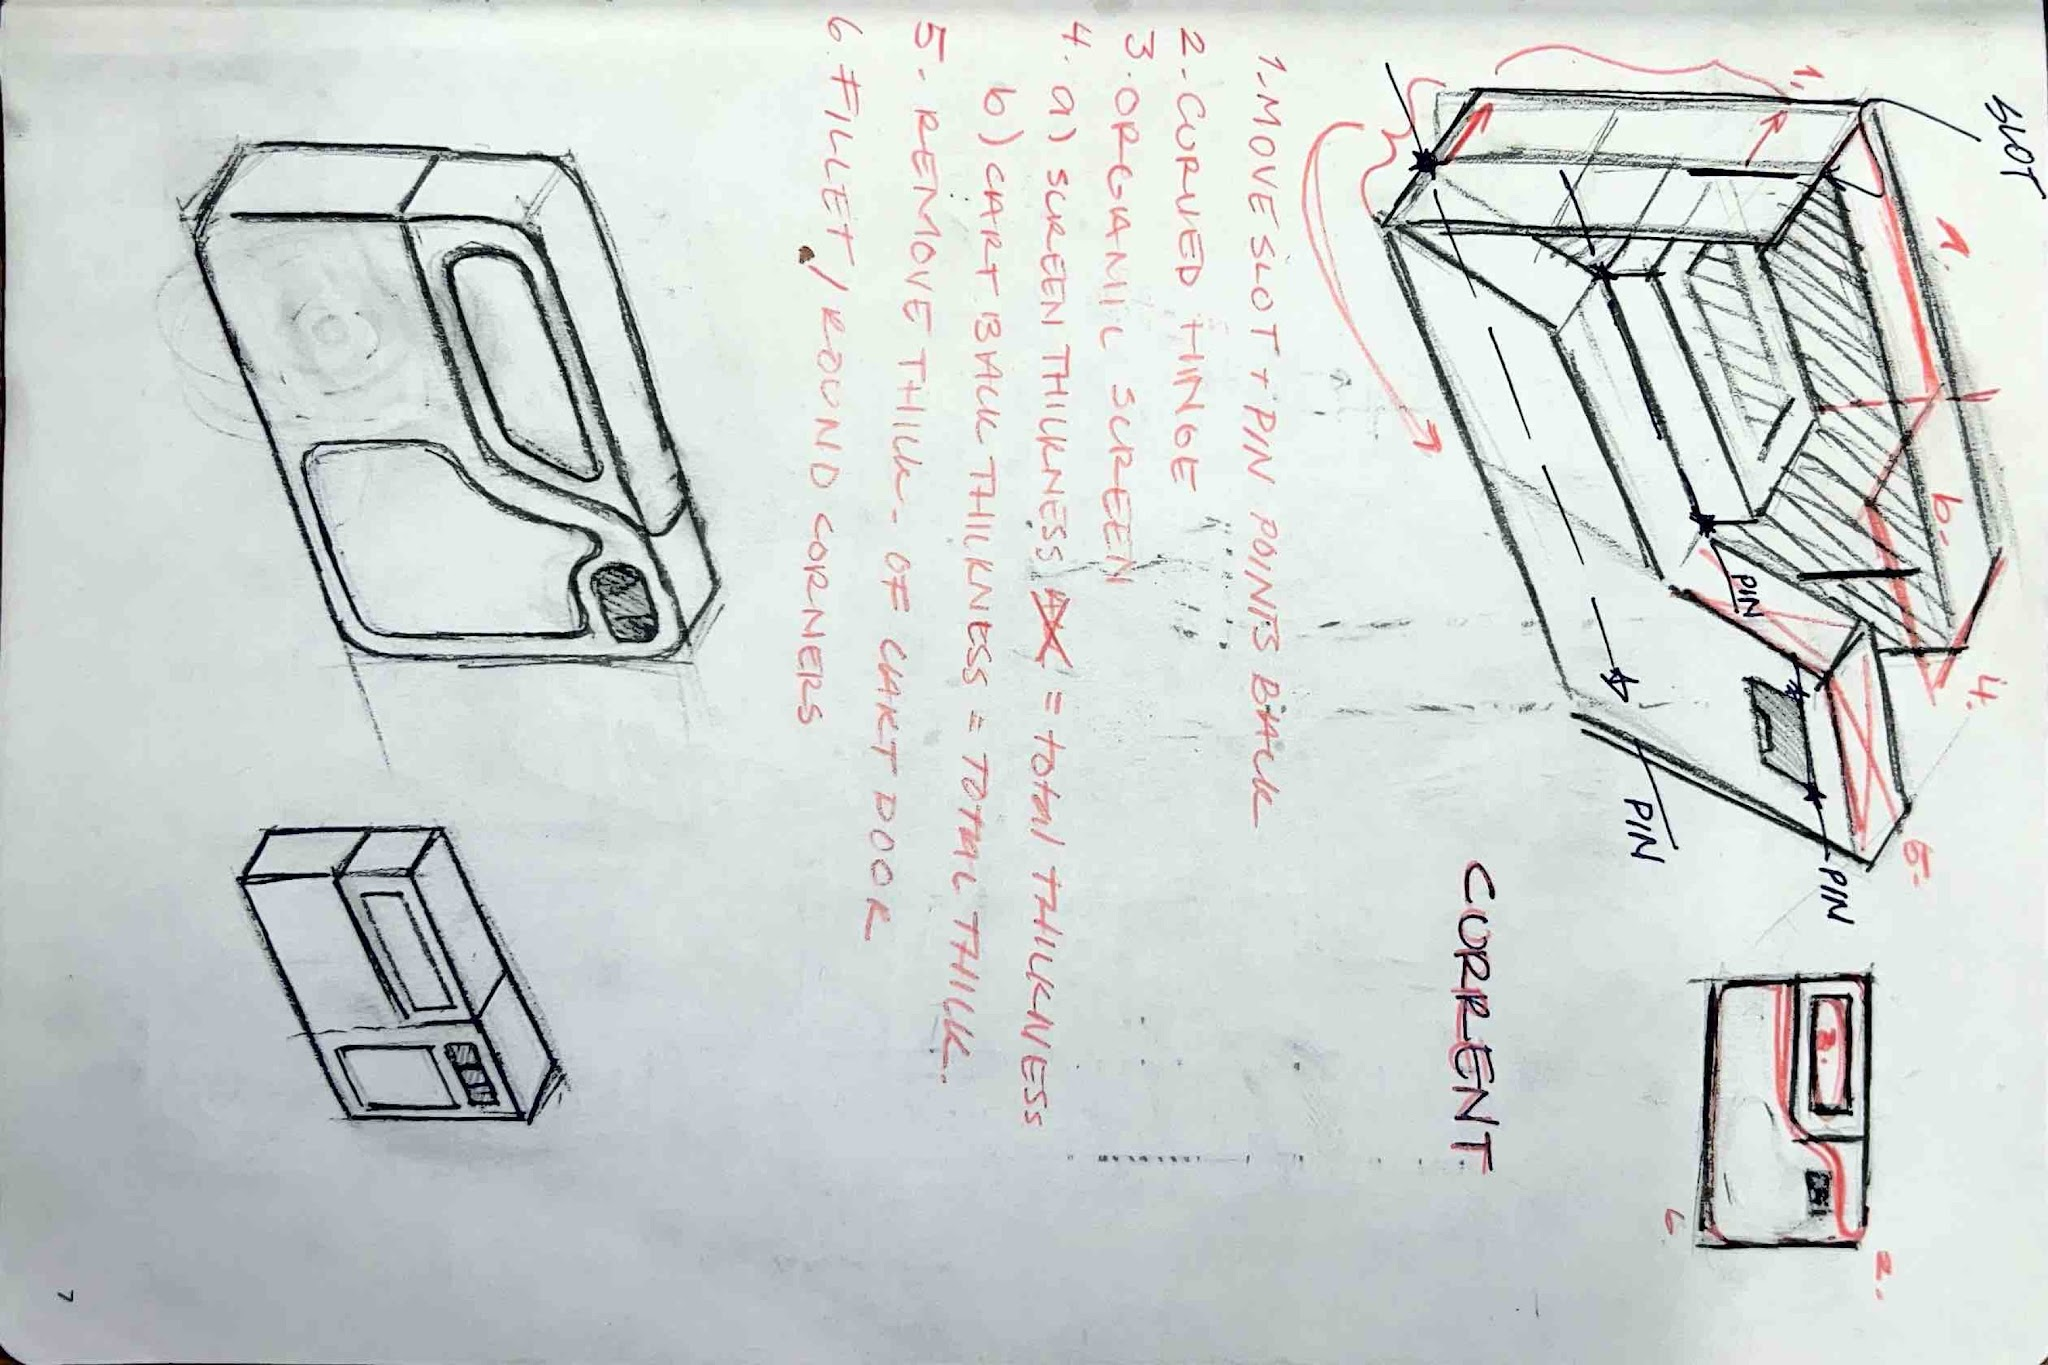 SLOT
1.
1.
b-
4.
PIN
PIN
PIN
5.
CURRENT
3.
6
2.
1. MOVE SLOT + PIN POINTS BACK
2. CURVED HINGE
3. ORGANIC SCREEN
4. a) SCREEN THICKNESS = total THICKNESS
b) CART BACK THICKNESS = TOTAL THICK.
5. REMOVE THICK. OF CART DOOR
6. FILLET / ROUND CORNERS
7